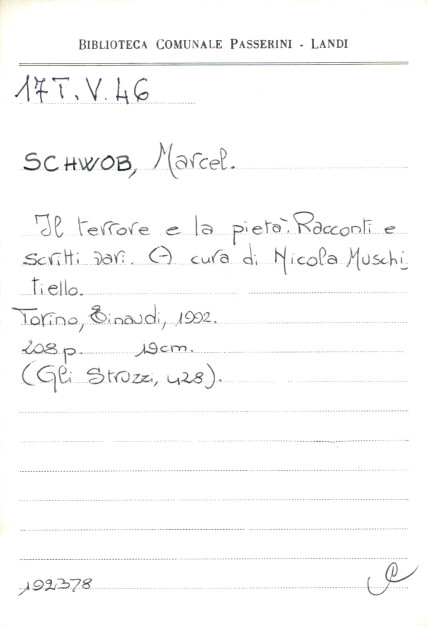 BIBLIOTECA COMUNALE PASSERINI - LANDI
17 T. V. 46
SCHWOB, Marcel.
Il terrore e la pietà. Racconti e
scritti vari. (A) cura di Nicola Muschi_
tiello.
Torino, Einaudi, 1992.
208 p. 19 cm.
(Gli Struzzi, 428).
192378